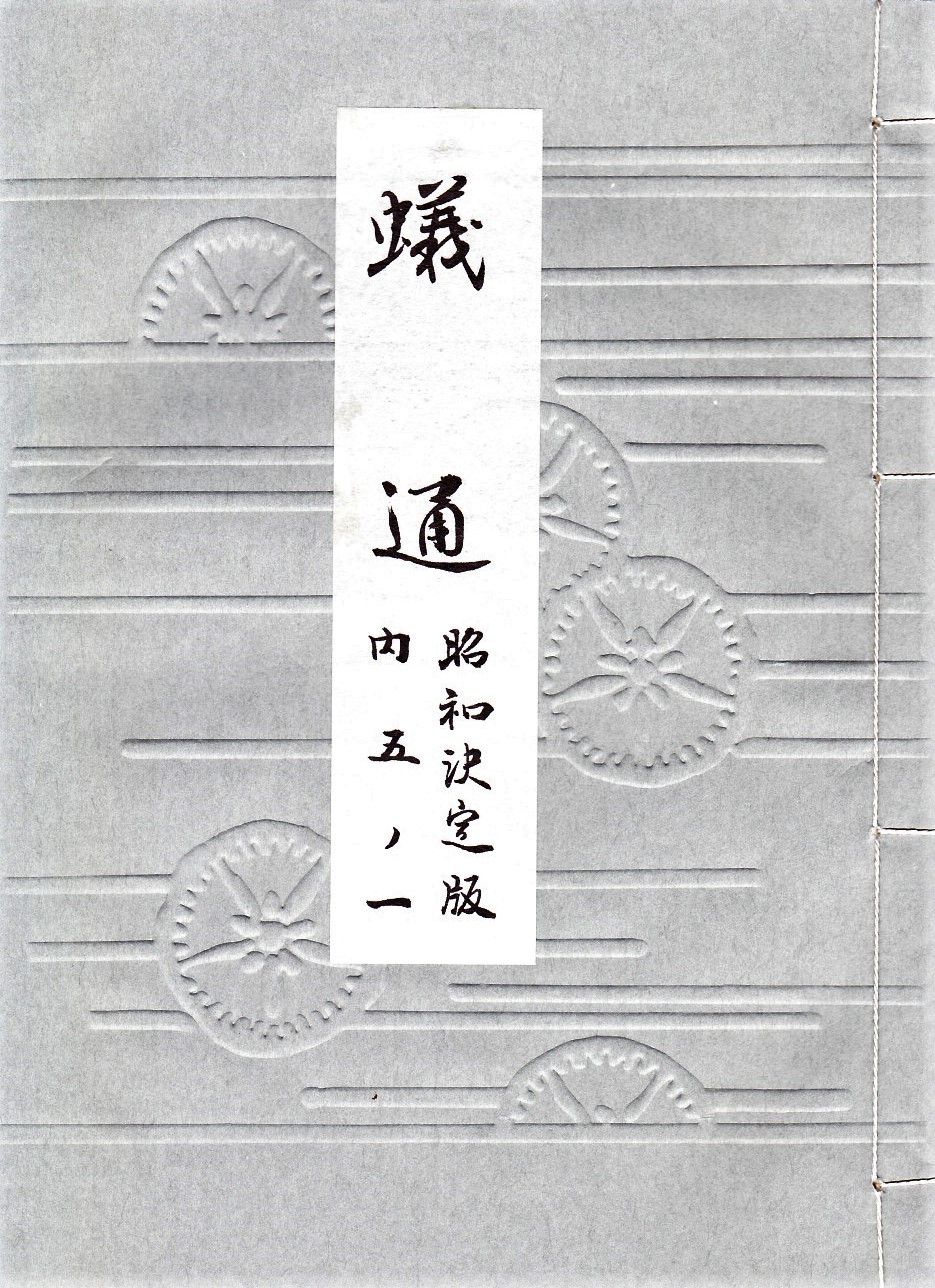 蟻通
昭和決定版
内五ノ一